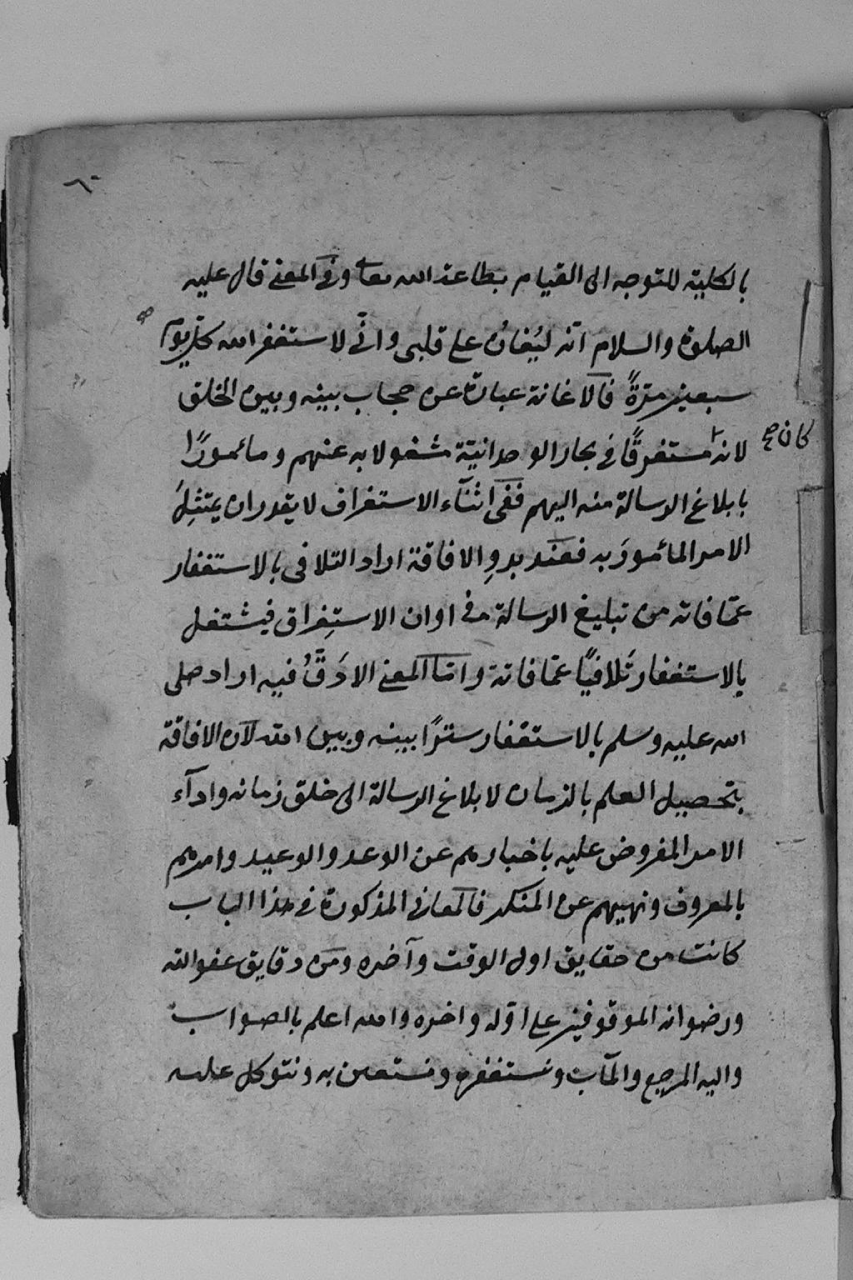 ٦٠
بالكلية للتوجه الى القيام بطاعة الله تعا وفى المعنى قال عليه
الصلوة والسلام انه ليُغان على قلبى وانّى لاستغفر الله كلّ يوم
سبعين مرّةً فالاغانة عبارة عن حجاب بينه وبين الخلق
لانه مستغرقًا فى بحار الوحدانيّة مشغولا به عنهم ومأمورًا
كان صح
بابلاغ الرسالة منه اليهم ففى اثنآء الاستغراق لا يقدر ان يمتثِلُ
الامر المأمورَ به فعند بدوِ الافاقة اراد التلافى بالاستغفار
عمّا فاته من تبليغ الرسالة فى اوان الاستِغراق فيشتغل
بالاستغفار تَلافيًا عمّا فاتة وامّا المعنى الادَقَّ فيه اراد صلى
الله عليه وسلم بالاستغفار سترًا بينه وبين امته لان الافاقة
بتحصيل العلم بالزمان لابلاغ الرسالة الى خلق زمانه وادآء
الامر المفروض عليه باخبارهم عن الوعد والوعيد وامرهم
بالمعروف ونهيهم عن المنكر فالمعانى المذكورة فى هذا الباب
كانت من حقايق اول الوقت وآخره ومن دقايق عفو الله
ورضوانه الموقوفين على اوّله واخره والله اعلم بالصواب
واليه المرجع والمآب ونستغفره ونستعين به ونتوكل عليه